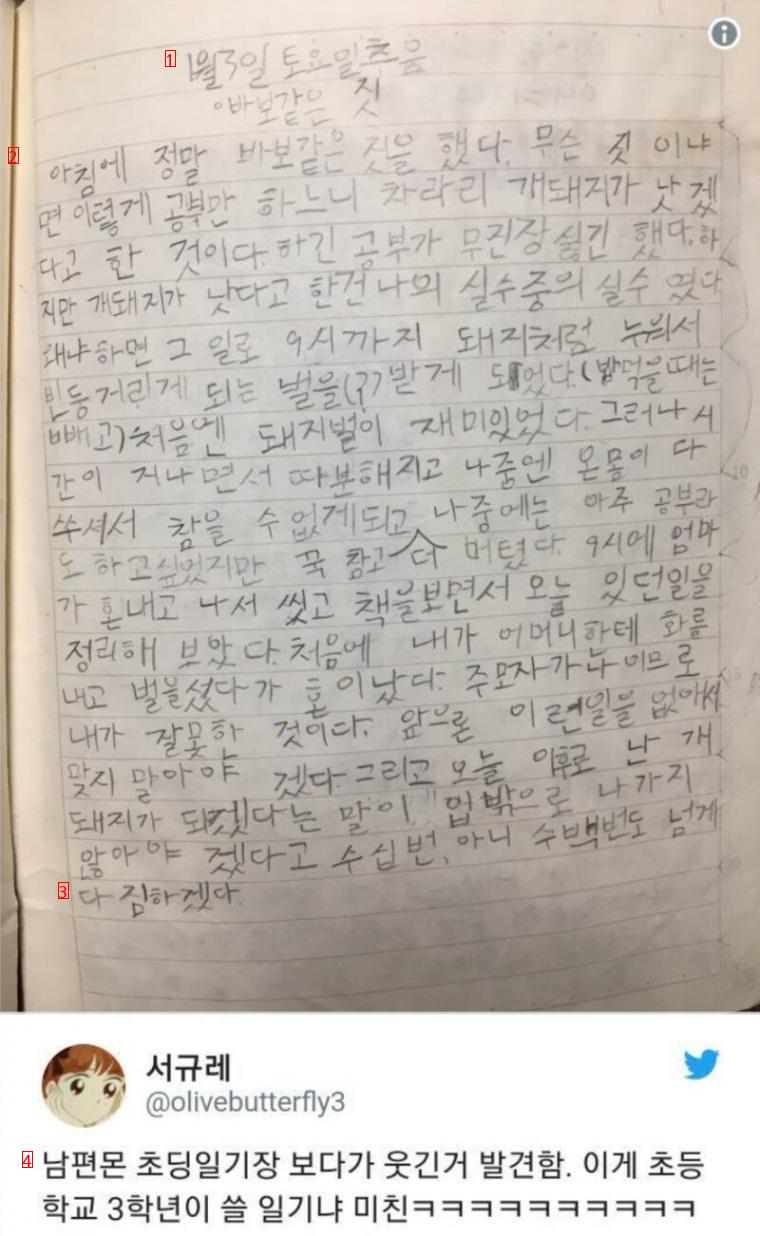 1
1월3일 토요일 추움
바보같은 짓
2
아침에 정말 바보같은 짓을 했다. 무슨 짓 이냐
면 이렇게 공부만 하느니 차라리 개돼지가 낫겠
다고 한 것이다. 하긴 공부가 무진장 싫긴 했다. 하
지만 개돼지가 낫다고 한건 나의 실수중의 실수 였다
왜냐하면 그 일로 9시까지 돼지처럼 누워서
빈둥거리게 되는 벌을(?) 받게 되었다. (밥먹을때는
빼고) 처음엔 돼지벌이 재미있었다. 그러나 시
간이 지나면서 따분해지고 나중엔 온몸이 다
쑤셔서 참을 수 없게되고 나중에는 아주 공부라
도 하고싶었지만 꾹 참고 더 버텼다. 9시에 엄마
가 혼내고 나서 씻고 책을보면서 오늘 있던일을
정리해 보았다. 처음에 내가 어머니한테 화를
내고 벌을섰다가 혼이났다. 주모자가 나 이므로
내가 잘못한 것이다. 앞으론 이런일을 없애서
맞지 말아야 겠다. 그리고 오늘 이후로 난 개
돼지가 되겠다는 말이 입밖으로 나가지
않아야 겠다고 수십번, 아니 수백번도 넘게
3
다짐하겠다.
서규레
@olivebutterfly3
4
남편몬 초딩일기장 보다가 웃긴거 발견함. 이게 초등
학교 3학년이 쓸 일기냐 미친ㅋㅋㅋㅋㅋㅋㅋㅋㅋㅋㅋ